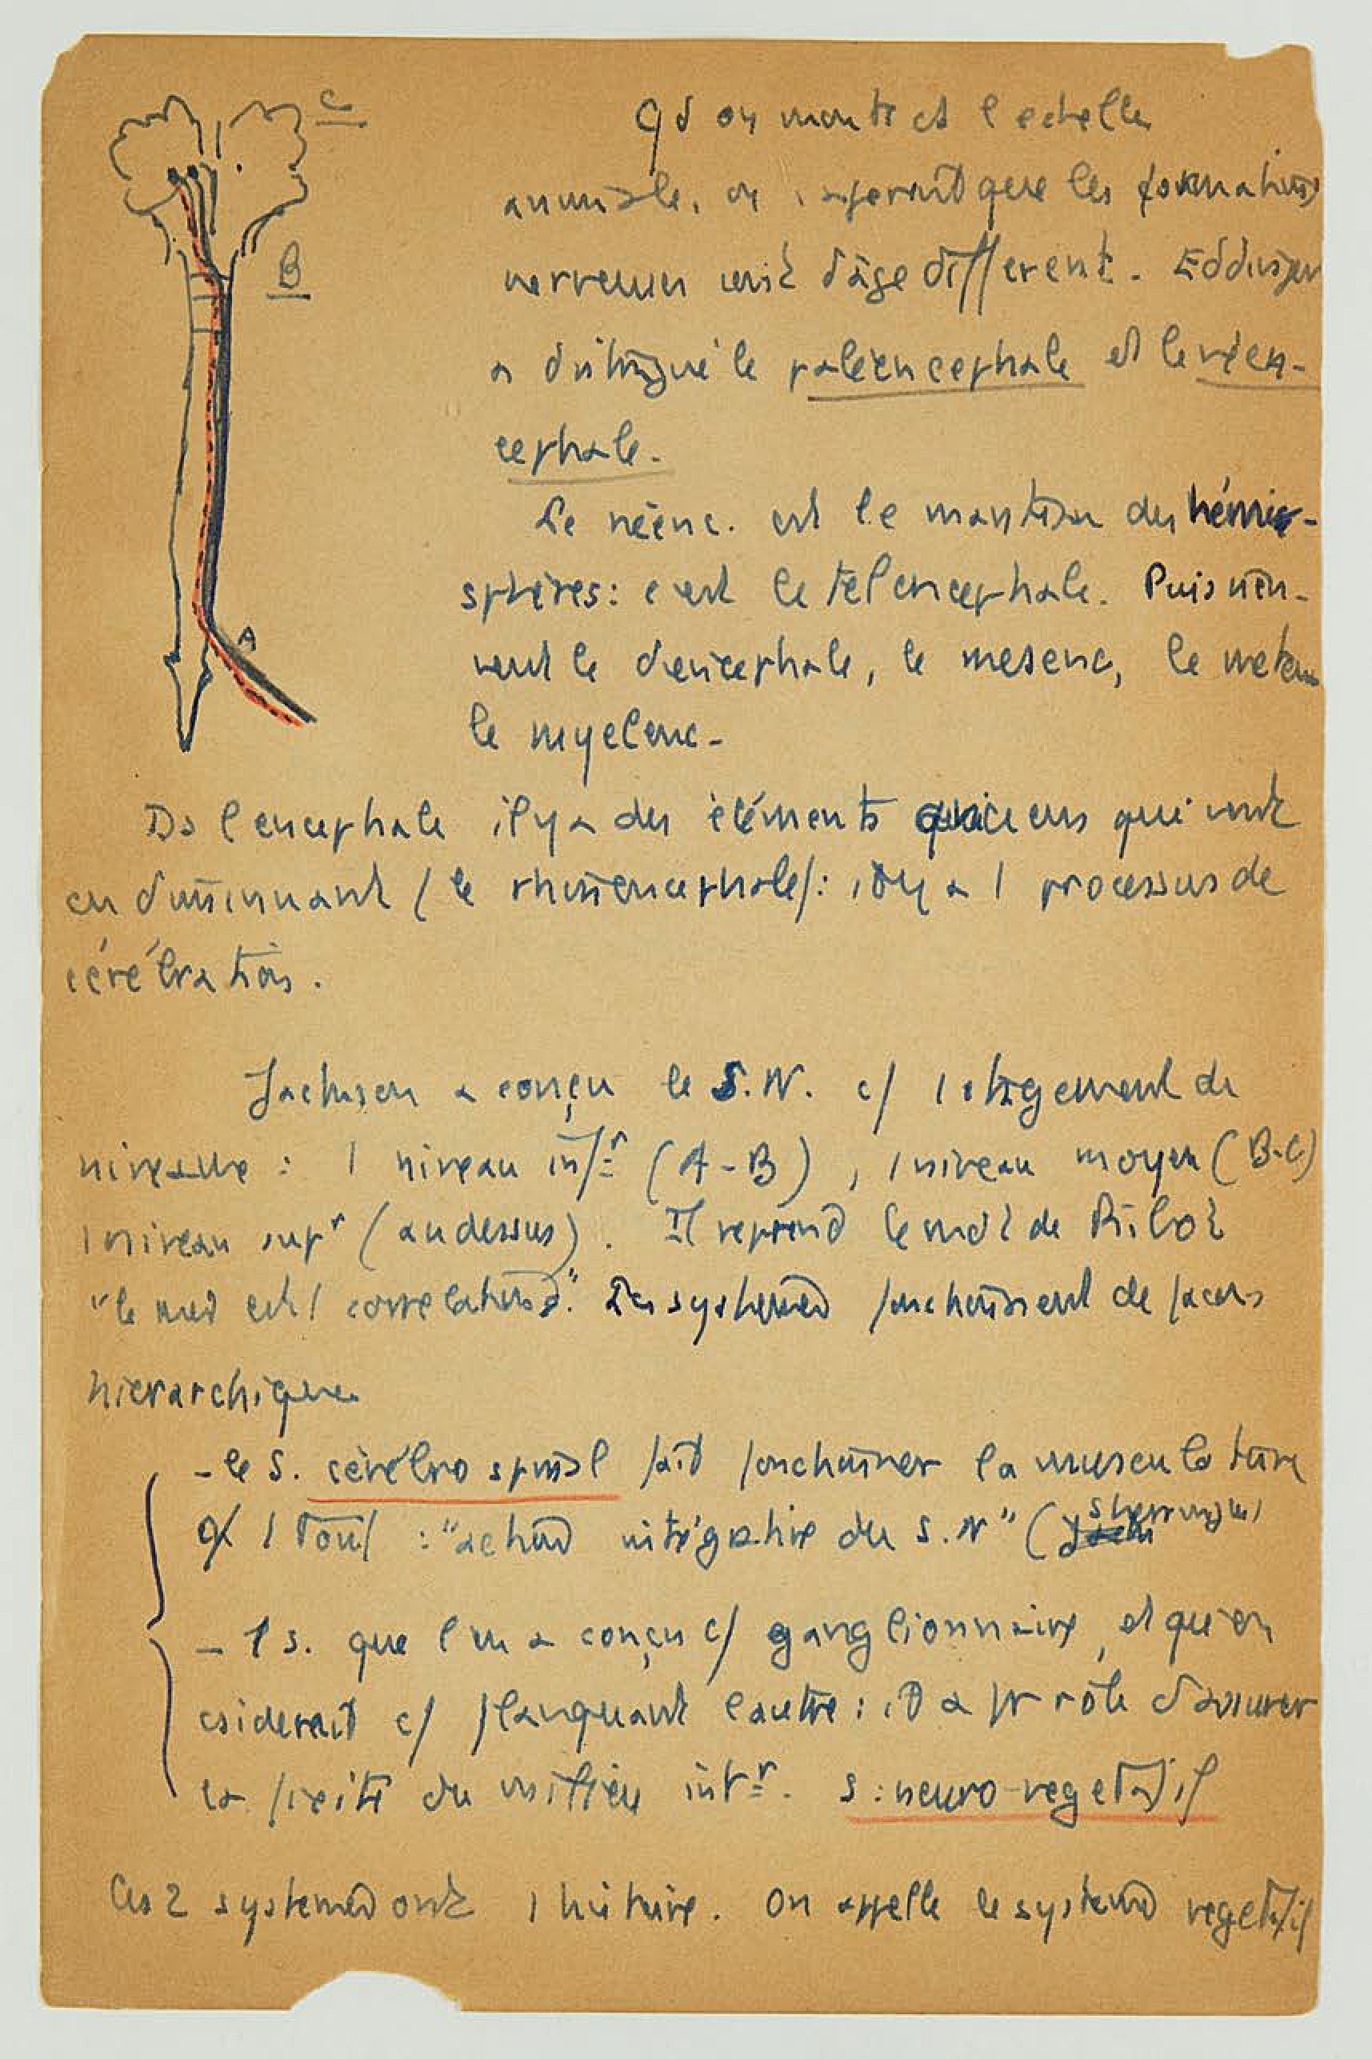 C
B
A
Qd on monte ds l echelle
animale, on s aperçoit que les formations
nerveuses sont d'âge different. Eddinger
a distingué le paléencephale et le néen-
cephale.
Le néenc. est le manteau des hémis-
sphères : c est le telencephale. Puis vien-
nent le diencephale, le mesenc, le metenc
le myelenc.
Ds l encephale il y a des éléments qui vont
en diminuant (le rhinencephale) : il y a 1 processus de
cérébration.
Jackson a conçu le S.N. c/ 1 etagement de
niveaux : 1 niveau infr (A-B), 1 niveau moyen (B-C)
1 niveau supr (au dessus). Il reprend le mot de Ribot
"le moi est 1 ". Les systemes fonctionnent de façon
hierarchique
- le S. cérébro spinal fait fonctionner la musculature
c/ 1 tout : "action intégrative du S.N" (Sherrington)
- 1 s. que l'on a conçu c/ ganglionnaire, et qu'on
csiderait c/ flanquant l autre : il a pr role d'assurer
la fixité du milieu intr. S : neuro-vegetatif
Ces 2 systemes ont 1 histoire. On appelle le systeme vegetatif